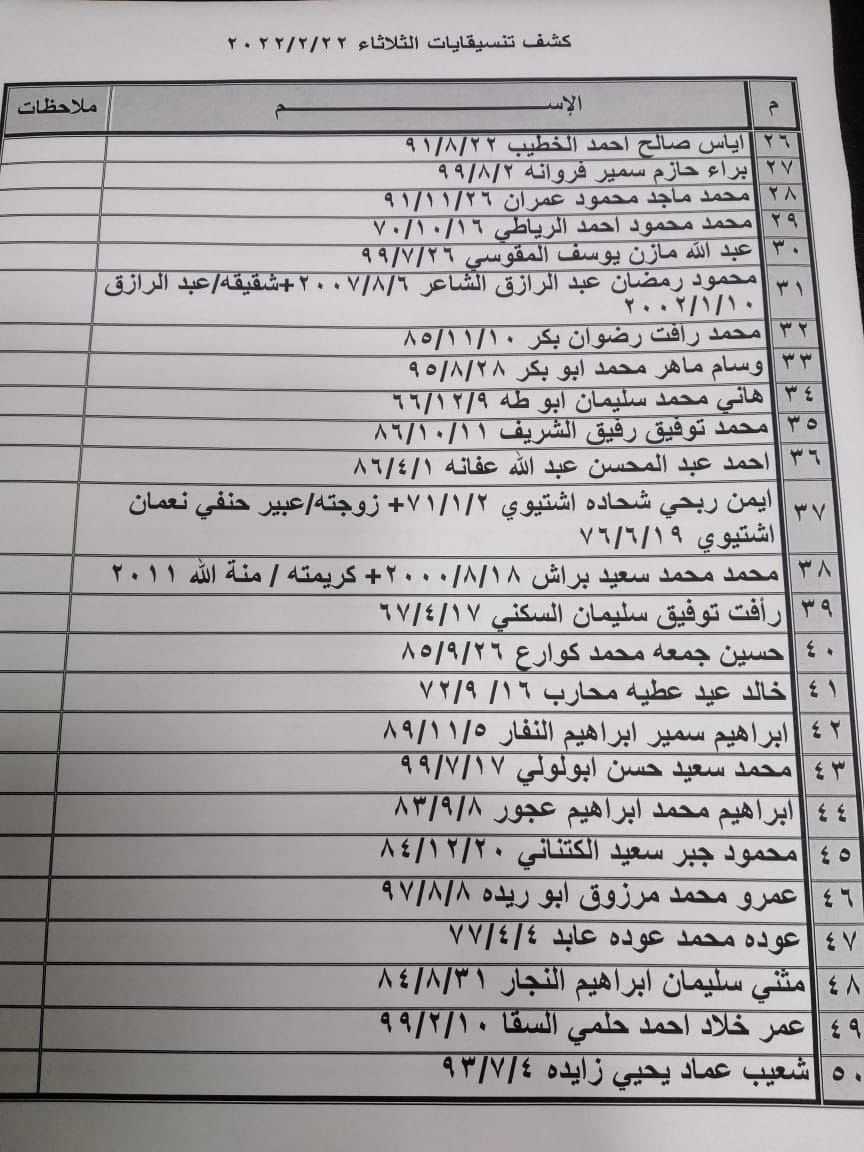 كشف تنسيقايات الثلاثاء ٢٠٢٢/٢/٢٢
م الإســـــــم ملاحظات
٢٦ اياس صالح احمد الخطيب ٩١/٨/٢٢
٢٧ براء حازم سمير فروانه ٩٩/٨/٢
٢٨ محمد ماجد محمود عمران ٩١/١١/٢٦
٢٩ محمد محمود احمد الرياطي ٧٠/١٠/١٦
٣٠ عبد الله مازن يوسف المقوسي ٩٩/٧/٢٦
٣١ محمود رمضان عبد الرازق الشاعر ٢٠٠٧/٨/٦+شقيقه/عبد الرازق
٢٠٠٢/١/١٠
٣٢ محمد رافت رضوان بكر ٨٥/١١/١٠
٣٣ وسام ماهر محمد ابو بكر ٩٥/٨/٢٨
٣٤ هاني محمد سليمان ابو طه ٦٦/١٢/٩
٣٥ محمد توفيق رفيق الشريف ٨٦/١٠/١١
٣٦ احمد عبد المحسن عبد الله عفانه ٨٦/٤/١
٣٧ ايمن ربحي شحاده اشتيوي ٧١/١/٢+ زوجته/عبير حنفي نعمان
اشتيوي ٧٦/٦/١٩
٣٨ محمد محمد سعيد براش ٢٠٠٠/٨/١٨+ كريمته / منة الله ٢٠١١
٣٩ رأفت توفيق سليمان السكني ٦٧/٤/١٧
٤٠ حسين جمعه محمد كوارع ٨٥/٩/٢٦
٤١ خالد عيد عطيه محارب ١٦/ ٧٢/٩
٤٢ ابراهيم سمير ابراهيم النفار ٨٩/١١/٥
٤٣ محمد سعيد حسن ابولولي ٩٩/٧/١٧
٤٤ ابراهيم محمد ابراهيم عجور ٨٣/٩/٨
٤٥ محمود جبر سعيد الكتناني ٨٤/١٢/٢٠
٤٦ عمرو محمد مرزوق ابو ريده ٩٧/٨/٨
٤٧ عوده محمد عوده عابد ٧٧/٤/٤
٤٨ مثني سليمان ابراهيم النجار ٨٤/٨/٣١
٤٩ عمر خلاد احمد حلمي السقا ٩٩/٢/١٠
٥٠ شعيب عماد يحيي زايده ٩٣/٧/٤